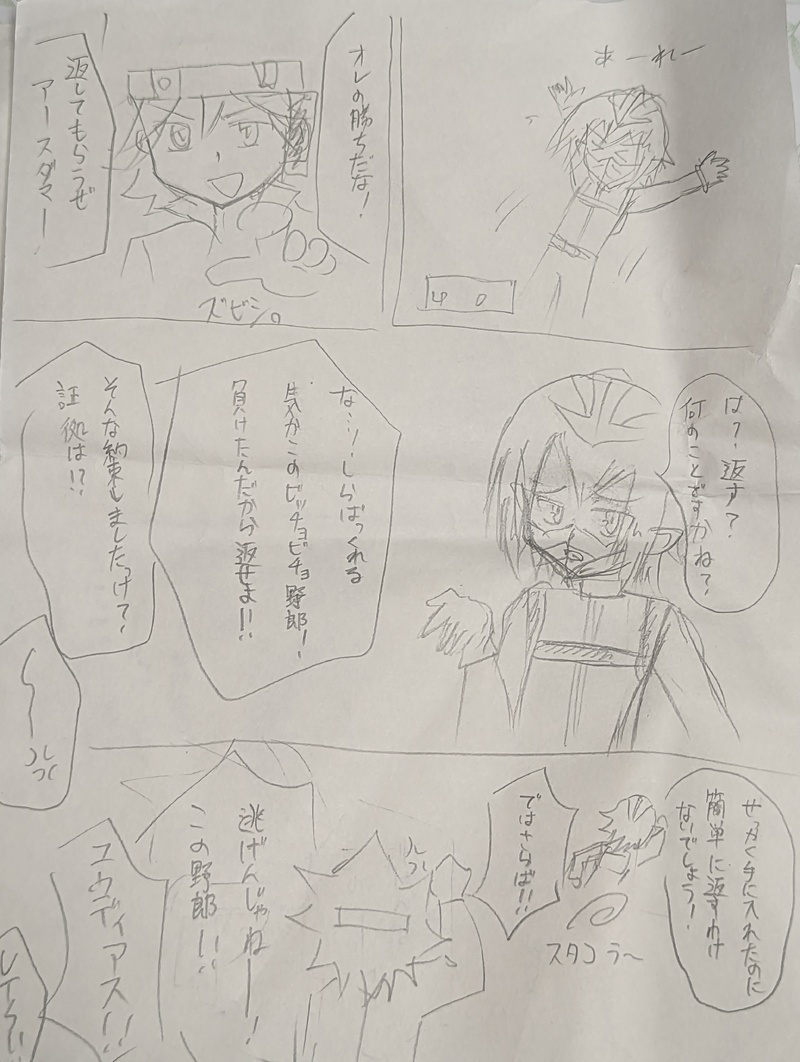 あーれー
40
オレの勝ちだな!
返してもらうぜ
アースダマー
ズビシ。
は?返す?
何のことですかね?
な…!しらばっくれる
気かこのビッチョビチョ野郎!
負けたんだから返せよ!!
そんな約束しましたっけ?
証拠は!?
せっかく手に入れたのに
簡単に返すわけ
ないでしょう!
スタコラ〜
ではさらば!!
逃げんじゃねー!
この野郎!!
ユウディアス!!